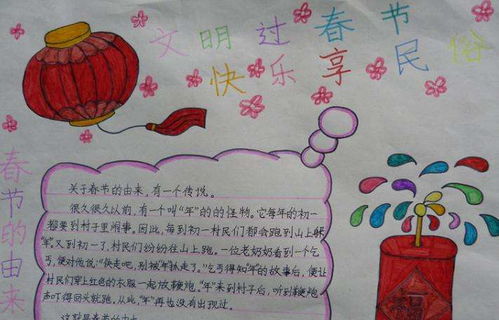 文明过春节
快乐享民俗
春节的由来
关于春节的由来，有一个传说。
很久很久以前，有一个叫“年”的的怪物。它每年的初一
都要到村子里闹事。因此，每到初一村民们都会跑到山上躲“
年”。又到初一了，村民们纷纷在山上跑。一位老奶奶看到一个乞
丐，便对他说：“快走吧，别被“年”抓走了。”乞丐得知“年”的故事后，便让
村民们穿上红色的衣服一起放鞭炮。“年”来到村子后，听到鞭炮
声吓得回头就跑。从此，“年”再也没有出现过。
这就是春节的由来